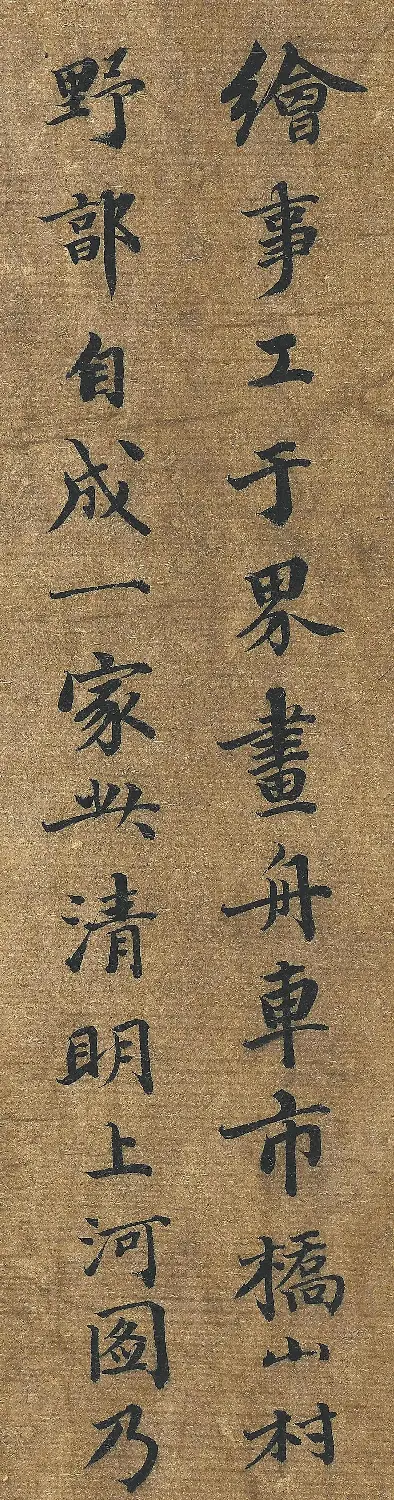 繪事工于界畫舟車市橋山村
野部自成一家此清明上河圖乃